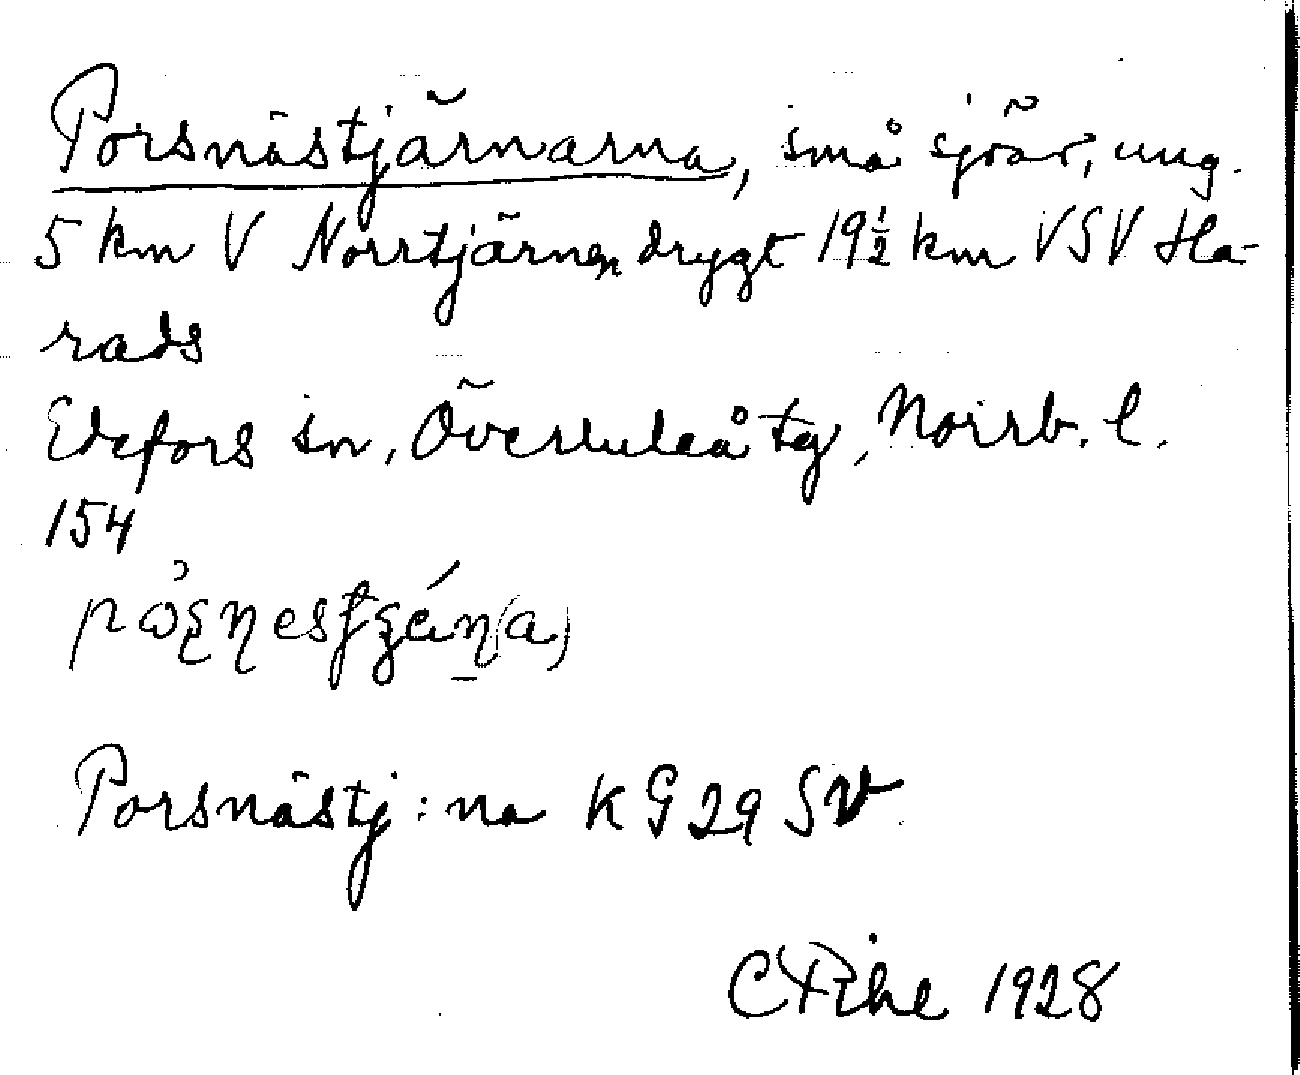 Porsnästjärnarna, små sjöar, ung.
5 km V Norrtjärnen drygt 19½ km VSV Ha-
rads
Edefors sn, Överluleå tg, Norrb. l.
154
Porsnästj:na KG 29 SV
1928